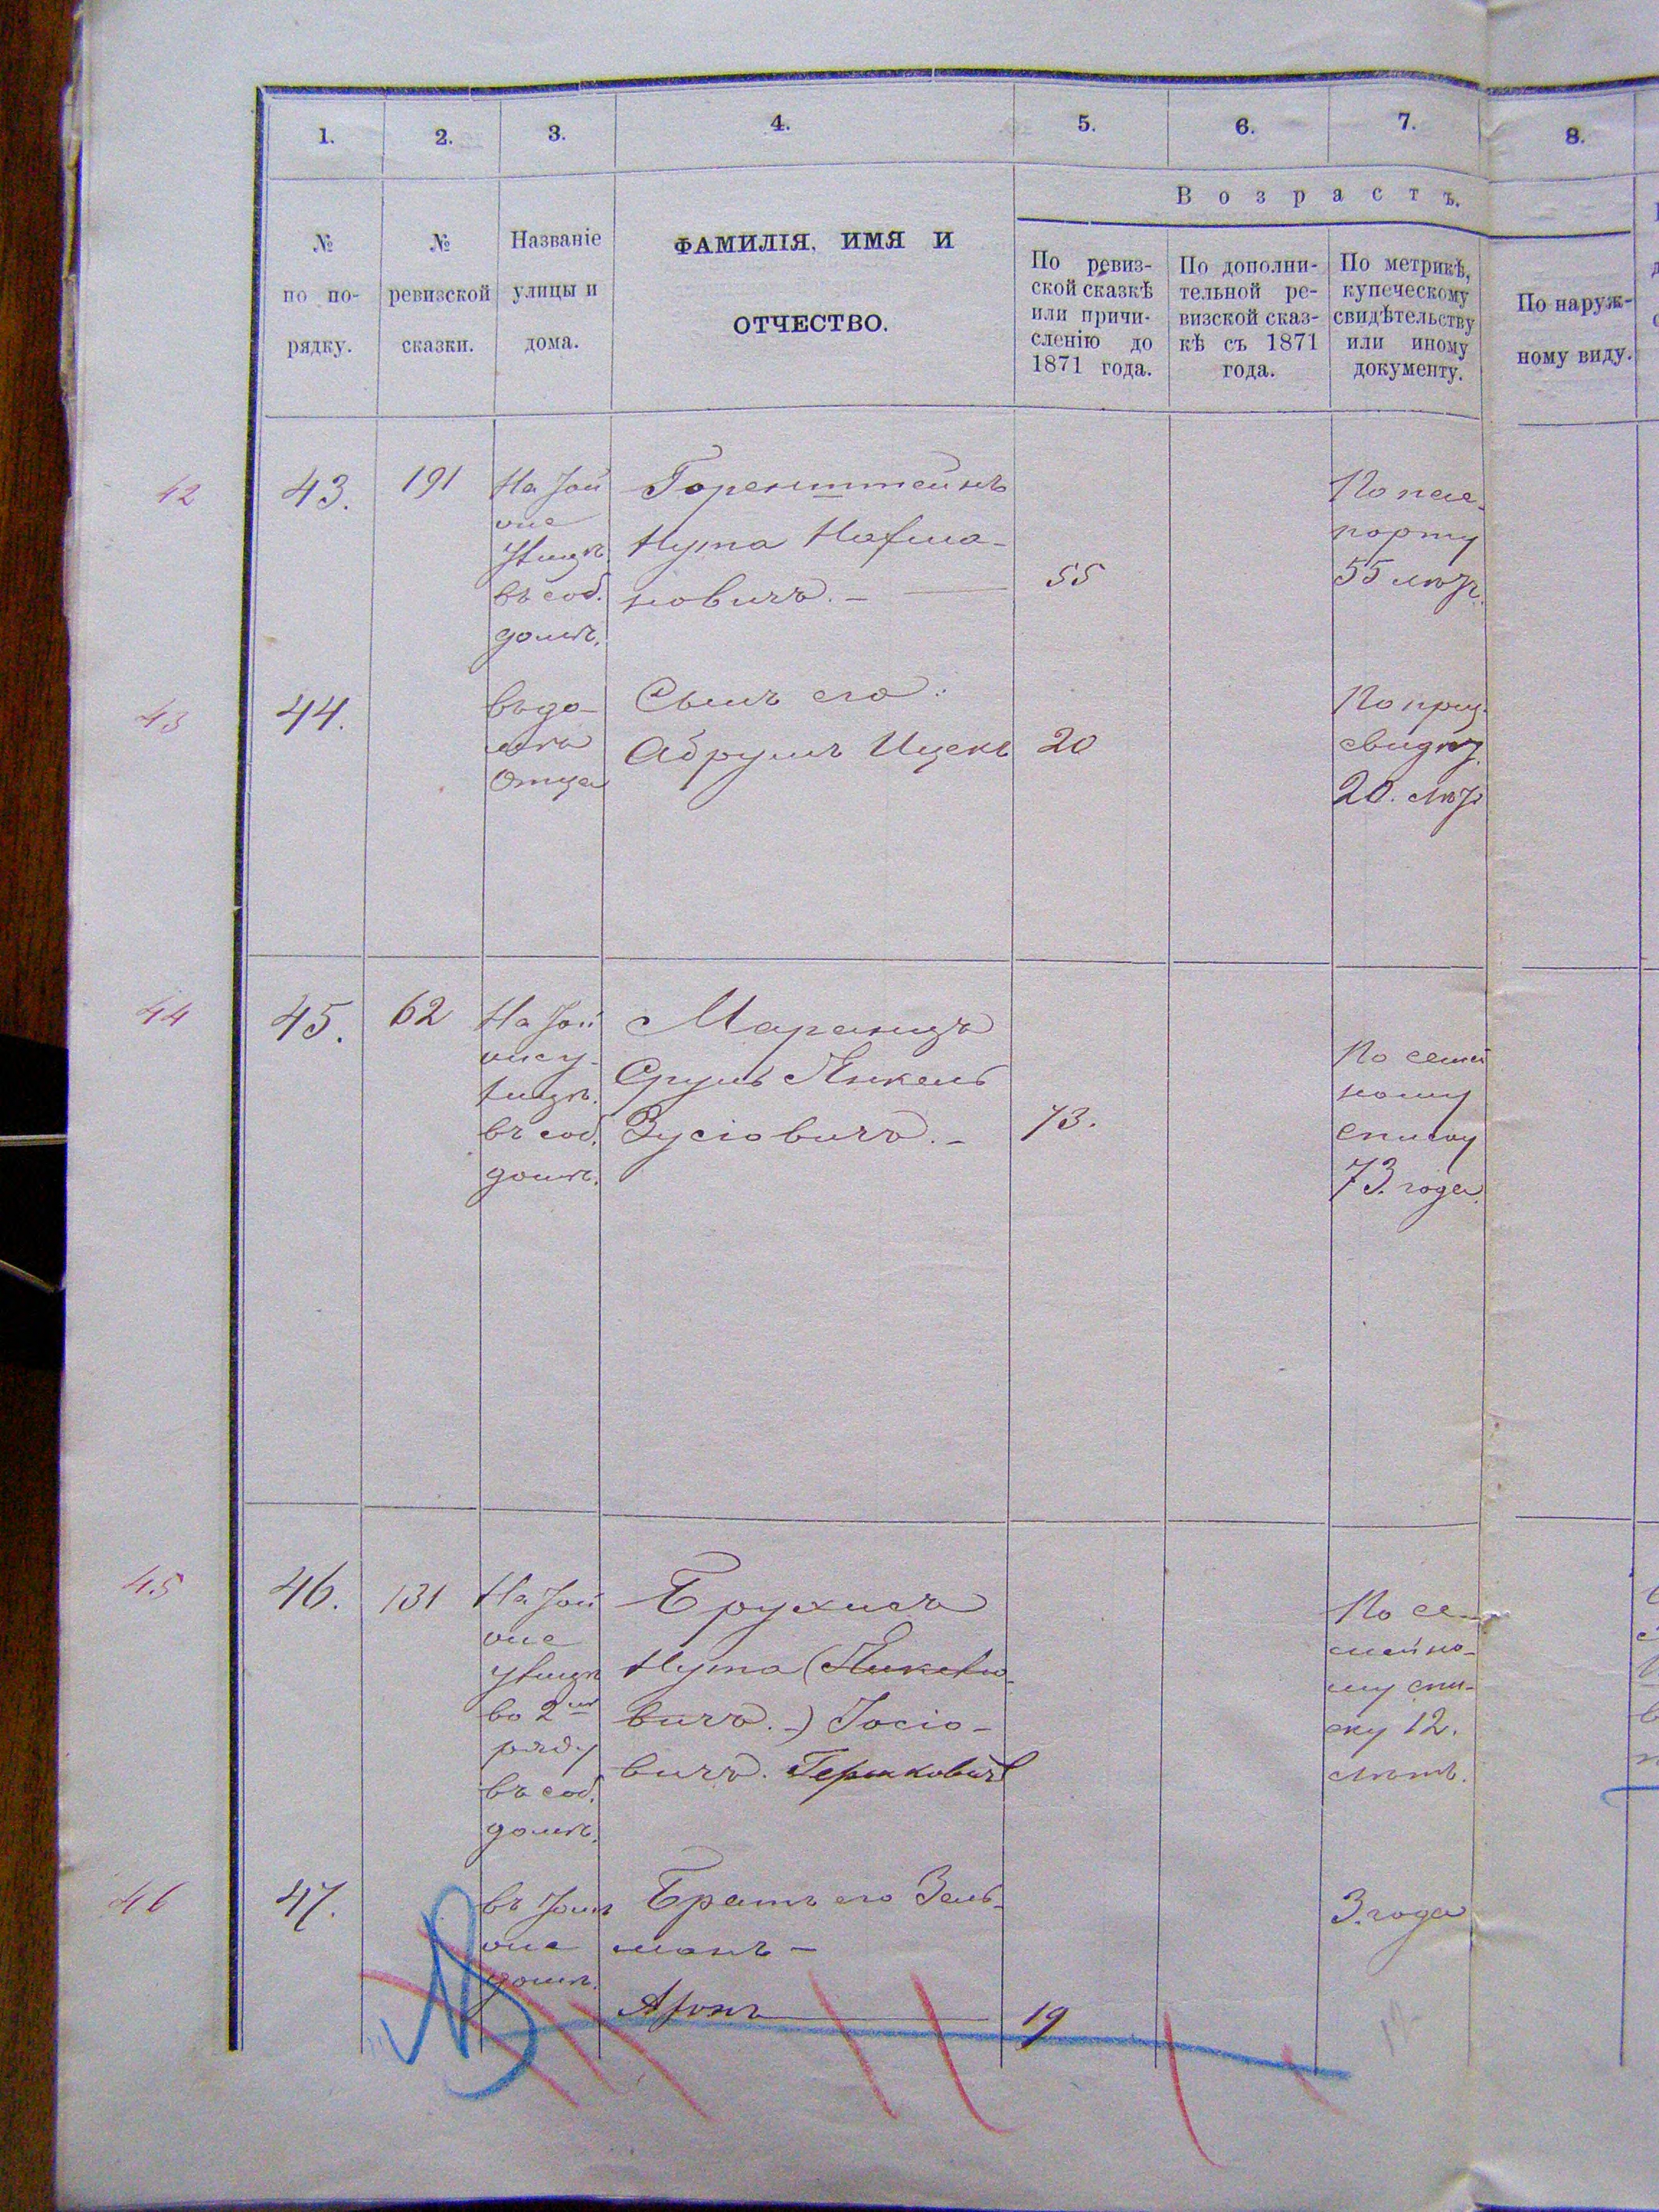 1. 2. 3. 4. 5. 6. 7. 8.
Возрастъ.
№
по по-
рядку.
№
ревизской
сказки.
Названіе
улицы и
дома.
ФАМИЛІЯ, ИМЯ И
ОТЧЕСТВО.
По ревиз-
ской сказкѣ
или причи-
сленію до
1871 года.
По дополни-
тельной ре-
визской сказ-
кѣ съ 1871
года.
По метрикѣ,
купеческому
свидѣтельству
или иному
документу.
По наруж-
ному виду.
42
43.
191
На
же
улицѣ
въ соб.
домѣ.
Горенштейнъ
Нута
новичъ. —
55
По пас-
порту
55 лѣтъ.
43
44.
въ до-
мѣ
отца
Сынъ его:
Абрумъ Ицекъ
20
По приз.
свидѣт.
20. лѣтъ
44
45.
62
На
же у-
лицѣ.
въ соб.
домѣ.
Маранцъ
Сруль Янкель
Зусіовичъ. —
73.
По семей
ному
списку
73. года.
45
46.
131
На
же
улицѣ
во 2мъ
ряду
въ соб.
домѣ.
Брухисъ
Нута (Янкеліо-
вичъ. -) Іосіо-
вичъ. Гершковичъ
По се-
мейно-
му спи-
ску 12.
лѣтъ.
46
47.
въ томъ
же
домѣ.
Братъ его Зель-
манъ —
3. года
Аронъ
19